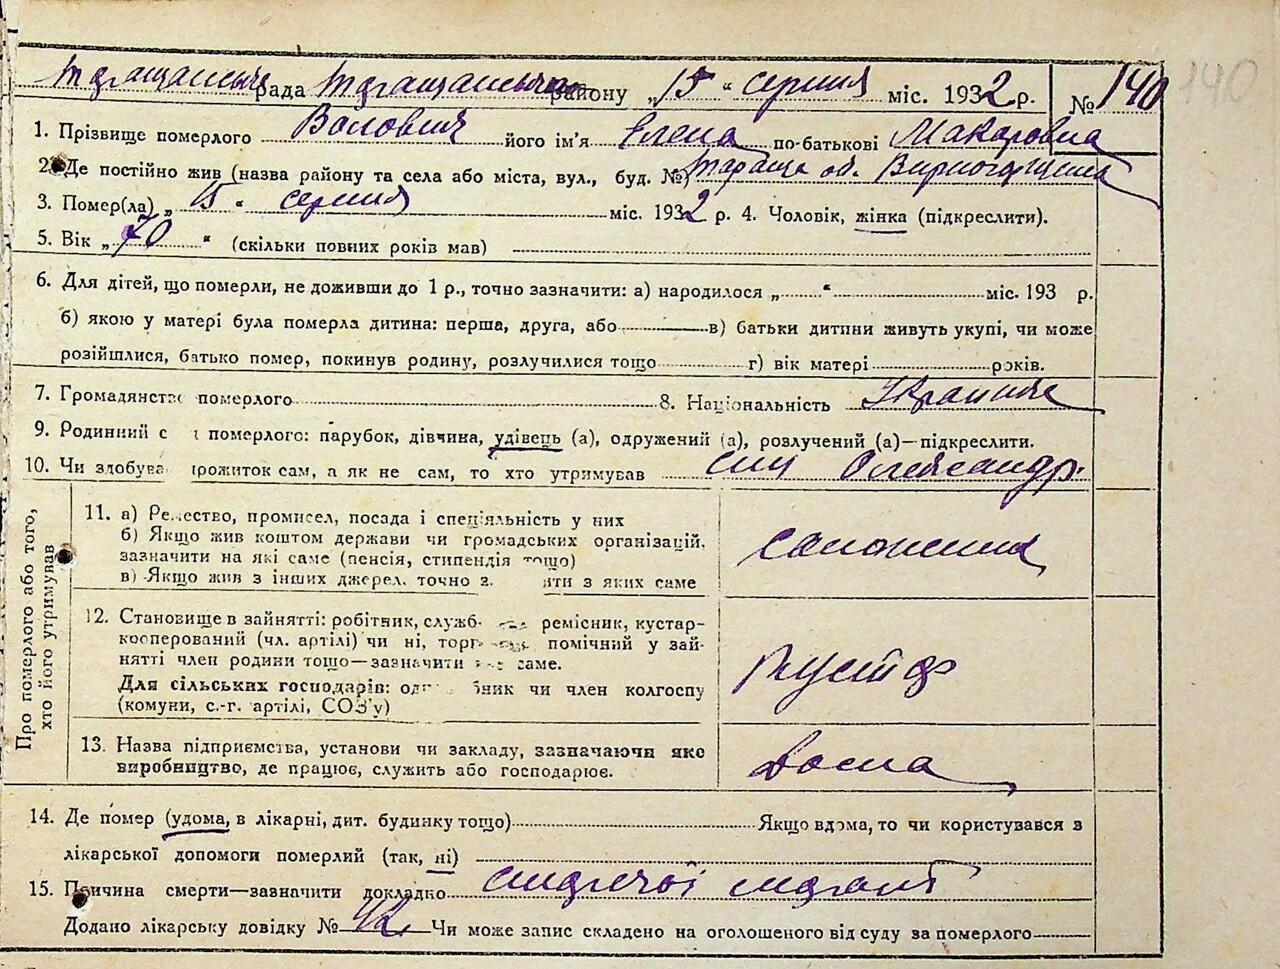 Таращанська рада Таращанського району „15“ серпня міс. 1932 р. № 140 140
1. Прізвище померлого його ім'я Елена по-батькові Макаровна
2. Де постійно жив (назва району та села або міста, вул., буд. №) Тараща
3. Помер(ла) „15“ серпня міс. 1932 р. 4. Чоловік, жінка (підкреслити).
5. Вік „70“ (скільки повних років мав)
6. Для дітей, що померли, не доживши до 1 р., точно зазначити: а) народилося „ “ міс. 193 р.
б) якою у матері була померла дитина: перша, друга, або в) батьки дитини живуть укупі, чи може
розійшлися, батько помер, покинув родину, розлучилися тощо г) вік матері років.
7. Громадянство померлого 8. Національність Україн
9. Родинний с померлого: парубок, дівчина, удівець (а), одружений (а), розлучений (а)—підкреслити.
10. Чи здобува прожиток сам, а як не сам, то хто утримував син Олександр
Про померлого або того,
хто його утримував
11. а) Ремество, промисел, посада і спеціяльність у них
б) Якщо жив коштом держави чи громадських організацій,
зазначити на які саме (пенсія, стипендія тощо)
в) Якщо жив з інших джерел, точно з ити з яких саме
12. Становище в зайнятті: робітник, служб- ремісник, кустар-
кооперований (чл. артілі) чи ні, торг помічний у зай-
нятті член родини тощо—зазначити саме.
Для сільських господарів: од бник чи член колгоспу
(комуни, с.-г. артілі, СОЗ'у)
кустар
13. Назва підприємства, установи чи закладу, зазначаючи яке
виробництво, де працює, служить або господарює.
дома
14. Де помер (удома, в лікарні, дит. будинку тощо) Якщо вдома, то чи користувався з
лікарської допомоги померлий (так, ні)
15. Причина смерти—зазначити докладно
Додано лікарську довідку № Чи може запис складено на оголошеного від суду за померлого